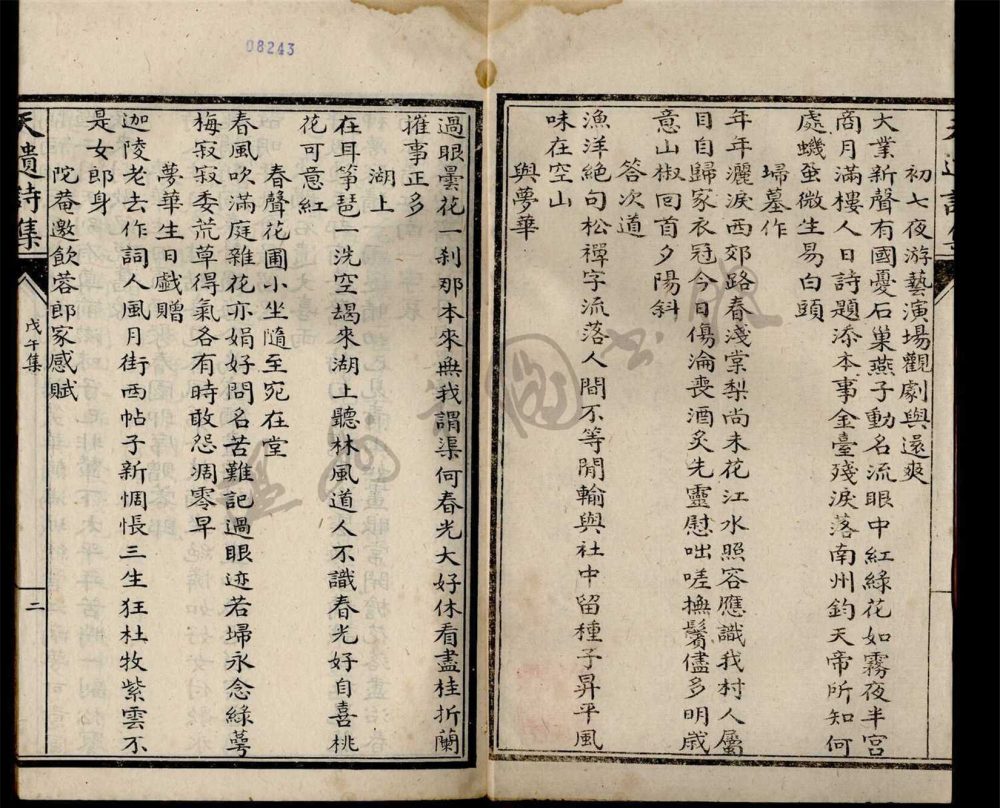 初七夜游藝演場觀劇與還爽
大業新聲有國憂石巢燕子動名流眼中紅綠花如霧夜半宮
商月滿樓人日詩題添本事金臺殘淚落南州鈞天帝所知何
處蟣蝨微生易白頭
埽墓作
年年灑淚西郊路春淺棠梨尚未花江水照容應識我村人屬
目自歸家衣冠今日傷淪喪酒炙先靈慰咄嗟撫鬢儘多明戚
意山椒回首夕陽斜
答次道
漁洋絕句松禪字流落人間不等閒輸與社中留種子昇平風
味在空山
與夢華
過眼曇花一剎那本來無我謂渠何春光大好休看盡桂折蘭
摧事正多
湖上
在耳箏琶一洗空朅來湖上聽林風道人不識春光好自喜桃
花可意紅
春聲花圃小坐隨至宛在堂
春風吹滿庭雜花亦娟好問名苦難記過眼迹若埽永念綠萼
梅寂寂委荒草得氣各有時敢怨凋零早
夢華生日戲贈
迦陵老去作詞人風月街西帖子新惆悵三生狂杜牧紫雲不
是女郎身
陀菴邀飲蓉郎家感賦
天遺詩集
戊午集
二
08243